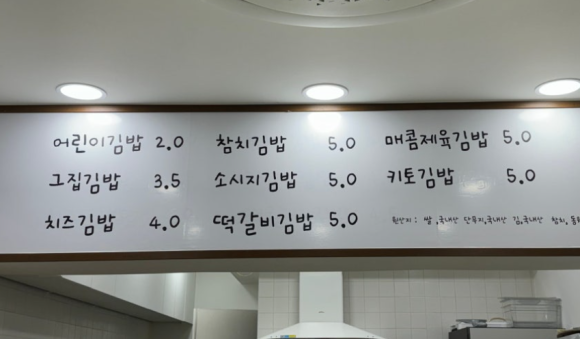 어린이김밥 2.0
그집김밥 3.5
치즈김밥 4.0
참치김밥 5.0
소시지김밥 5.0
떡갈비김밥 5.0
매콤제육김밥 5.0
키토김밥 5.0
원산지 : 쌀,국내산 단무지,국내산 김,국내산 참치,